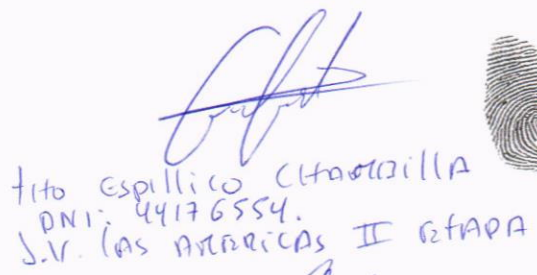 tito Espillico CHAMBILLA
DNI: 44176554.
J.V. LAS AMERICAS II ETAPA